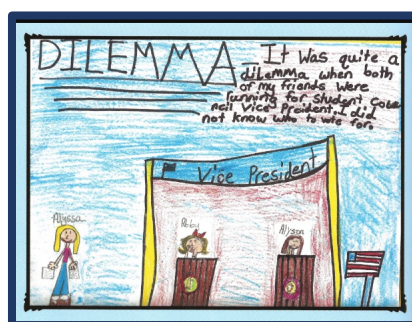 DILEMMA
It was quite a
dilemma when both
of my friends were
running for student coun
neil Vice President. I did
not know who to vote for.
Vice President
Alyssa
Alyson